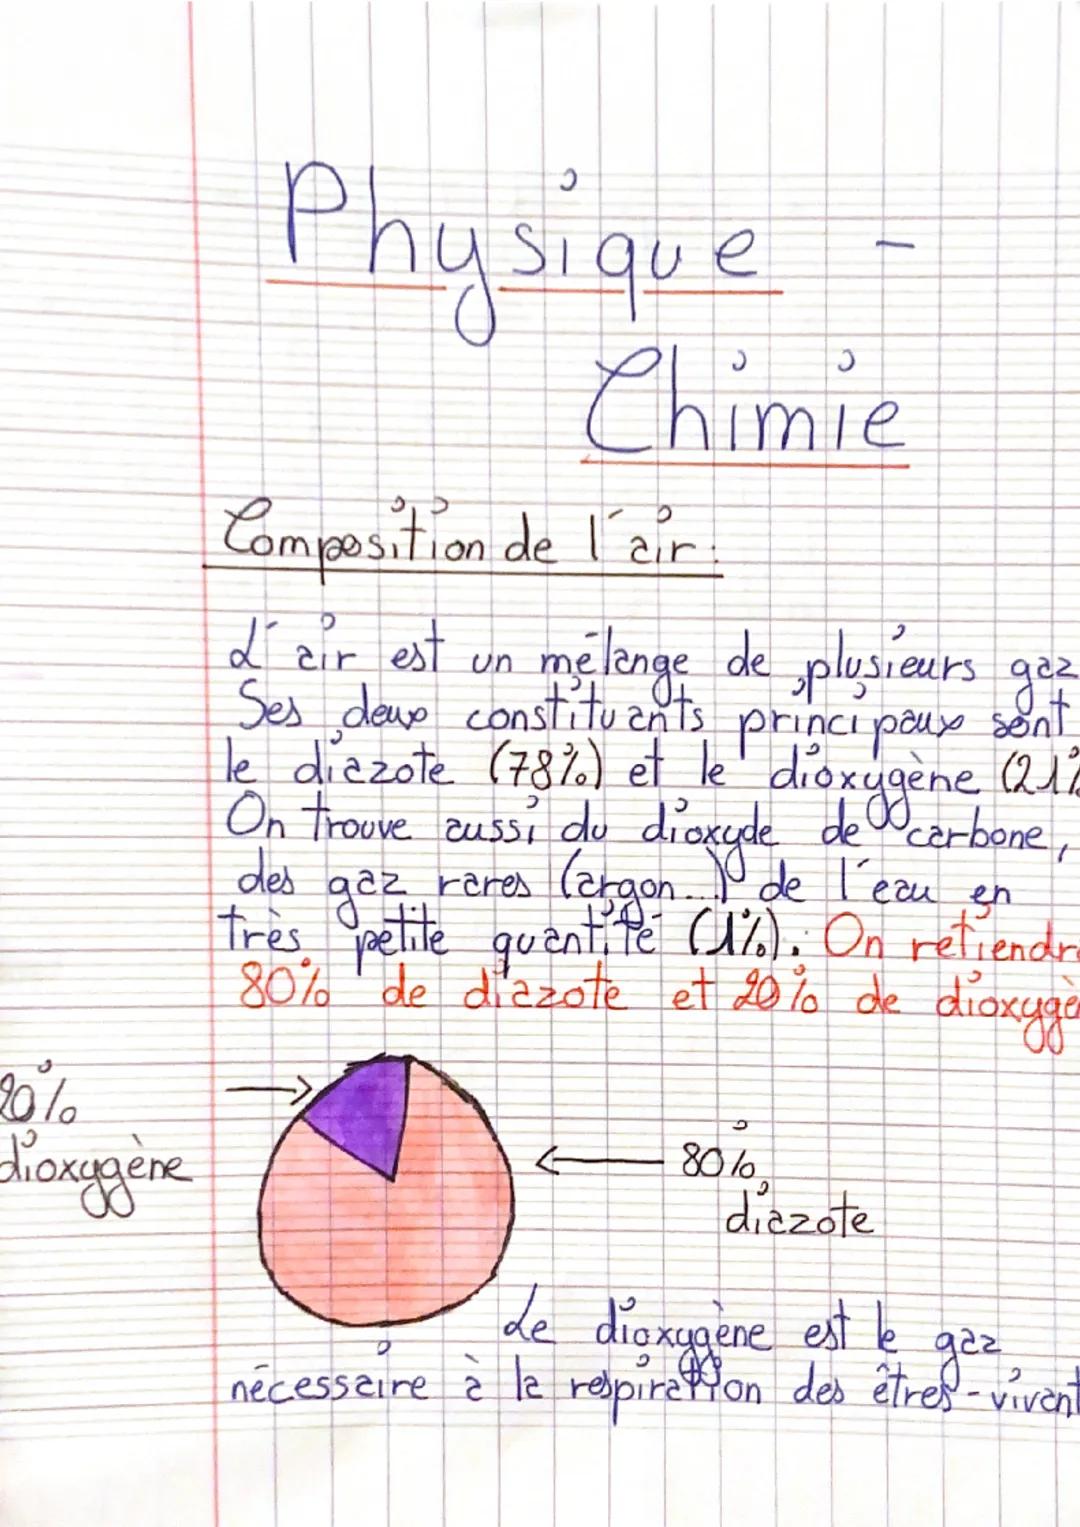 Physique -
Chimie
Composition de l'air :
L'air est un mélange de plusieurs gaz
Ses deux constituants principaux sont
le diazote (78%) et le dioxygène (21%
On trouve aussi du dioxyde de carbone,
des gaz rares (argon...) de l'eau en
très petite quantité (1%). On retiendra
80% de diazote et 20% de dioxygè
20%
dioxygène
80%
diazote
Le dioxygène est le gaz
nécessaire à la respiration des êtres-vivant